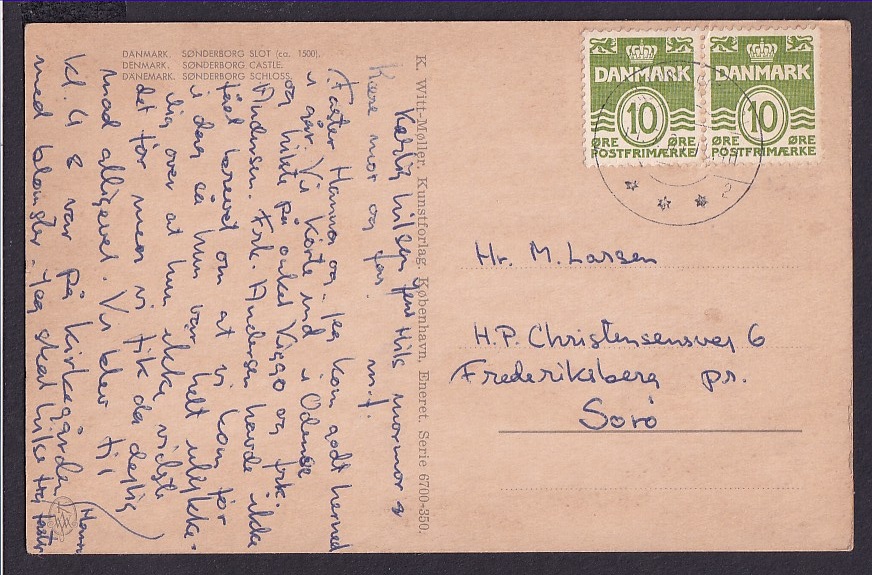 DANMARK. SØNDERBORG SLOT (ca. 1500).
DENMARK. SØNDERBORG CASTLE.
DÄNEMARK. SØNDERBORG SCHLOSS.
K. Witt-Møller, Kunstforlag. København, Eneret. Serie 6700-350.
DANMARK
10
ØRE ØRE
POSTFRIMÆRKE
DANMARK
10
ØRE ØRE
POSTFRIMÆRKE
2
Hr. M. Larsen
H.P. Christensensvej 6
Frederiksberg pr.
Sorø
Kærlig hilsen Hils mormor &
m.f.
Kære mor og far.
Faster Hanna og jeg kom godt herned
i går. Vi kørte ind i Odense
og hilste på onkel Viggo og frk.
Andersen. Frk. Andersen havde ikke
fået brevet om at vi kom før
i dag så hun var helt ulykke-
lig over at hun ikke vidste
det før men vi fik da dejlig
mad alligevel. Vi blev til
kl. 4 & var på kirkegården
med blomster. Jeg skal hilse fra faster
Hanna